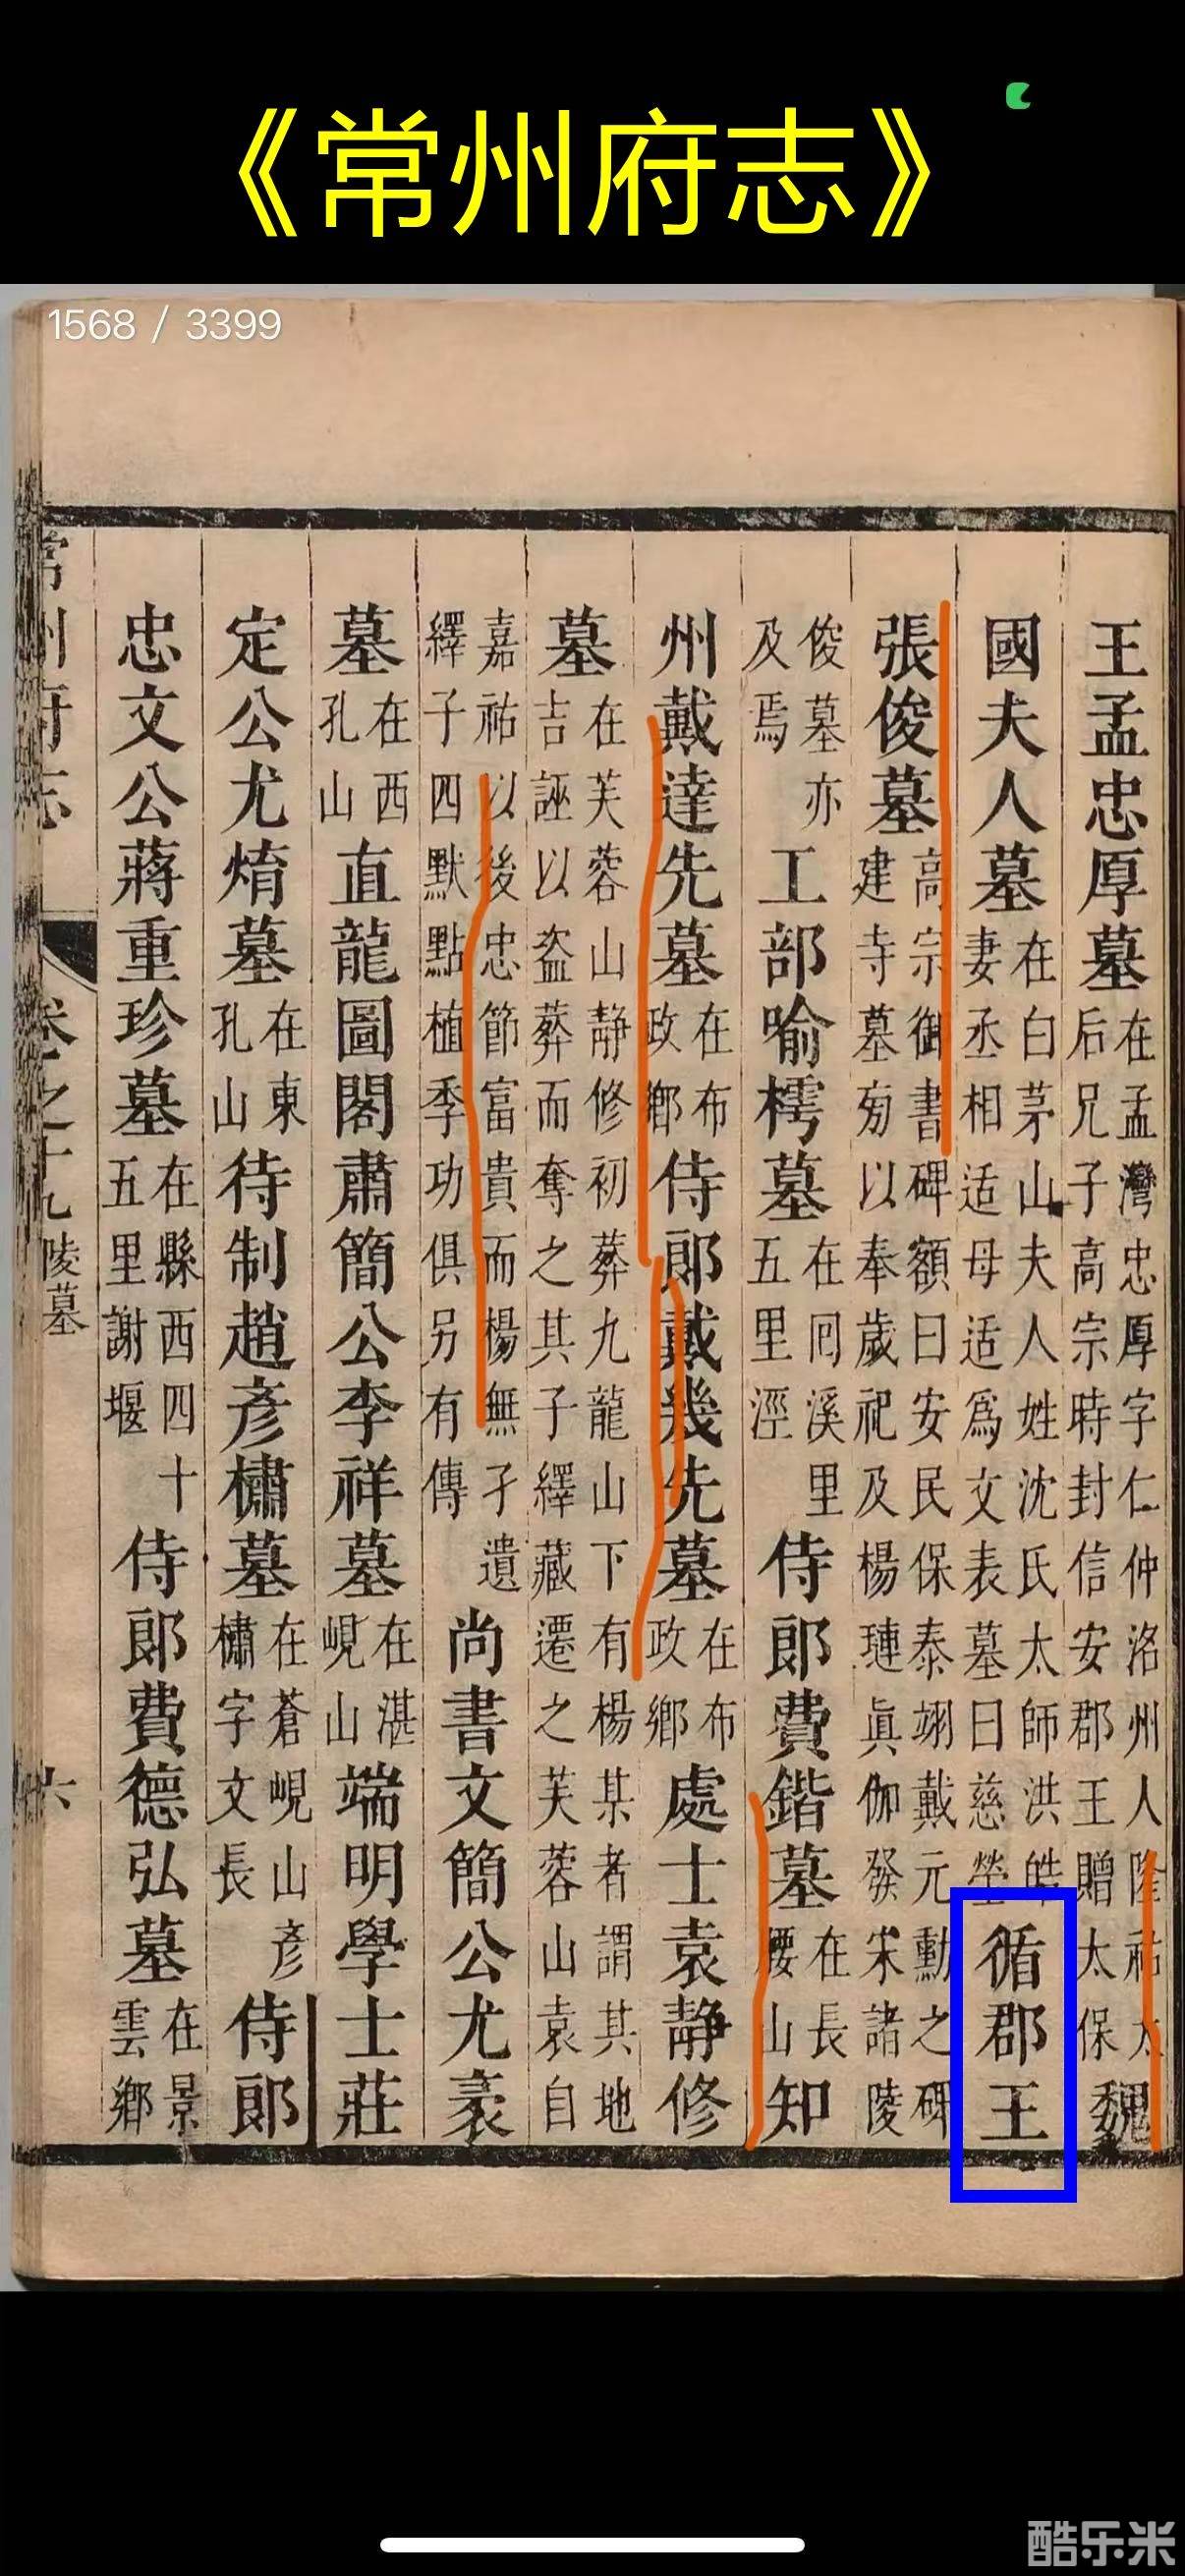 《常州府志》
1568 / 3399
王孟忠厚墓在孟灣忠厚字仁仲洛州人隆祐太后兄子高宗時封信安郡王贈太保魏
國夫人墓在白茅山夫人姓沈氏太師洪皓妻丞相适母适爲文表墓曰慈塋循郡王
張俊墓高宗御書碑額曰安民保泰翊戴元勳之碑建寺墓旁以奉歲祀及楊璉眞伽發宋諸陵
俊墓亦及焉工部喻樗墓在囘溪里五里涇侍郎費鍇墓在長腰山知
州戴達先墓在布政鄉侍郎戴幾先墓在布政鄉處士袁静修
墓在芙蓉山静修初葬九龍山下有楊某者謂其地吉誣以盜葬而奪之其子繹藏遷之芙蓉山袁自
嘉祐以後忠節富貴而楊無孑遺繹子四默點植季功俱另有傳尚書文簡公尤袤
墓在西孔山直龍圖閣肅簡公李祥墓在湛峴山端明學士莊
定公尤焴墓在東孔山待制趙彥橚墓在蒼峴山彥橚字文長侍郎
忠文公蔣重珍墓在縣西四十五里謝堰侍郎費德弘墓在景雲鄉
常州府志 卷之十九 陵墓 六
酷乐米